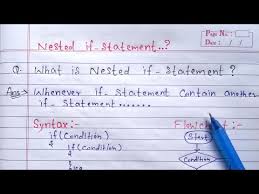 Page No :
Date : / /
Nested if-statement..?
Q. What is Nested if-Statement ?
Ans > Whenever if-Statement Contain another
if-Statement.......
Syntax:-
if(Condition)
{
if(Condition)
{
Flowchart:-
Start
Condition